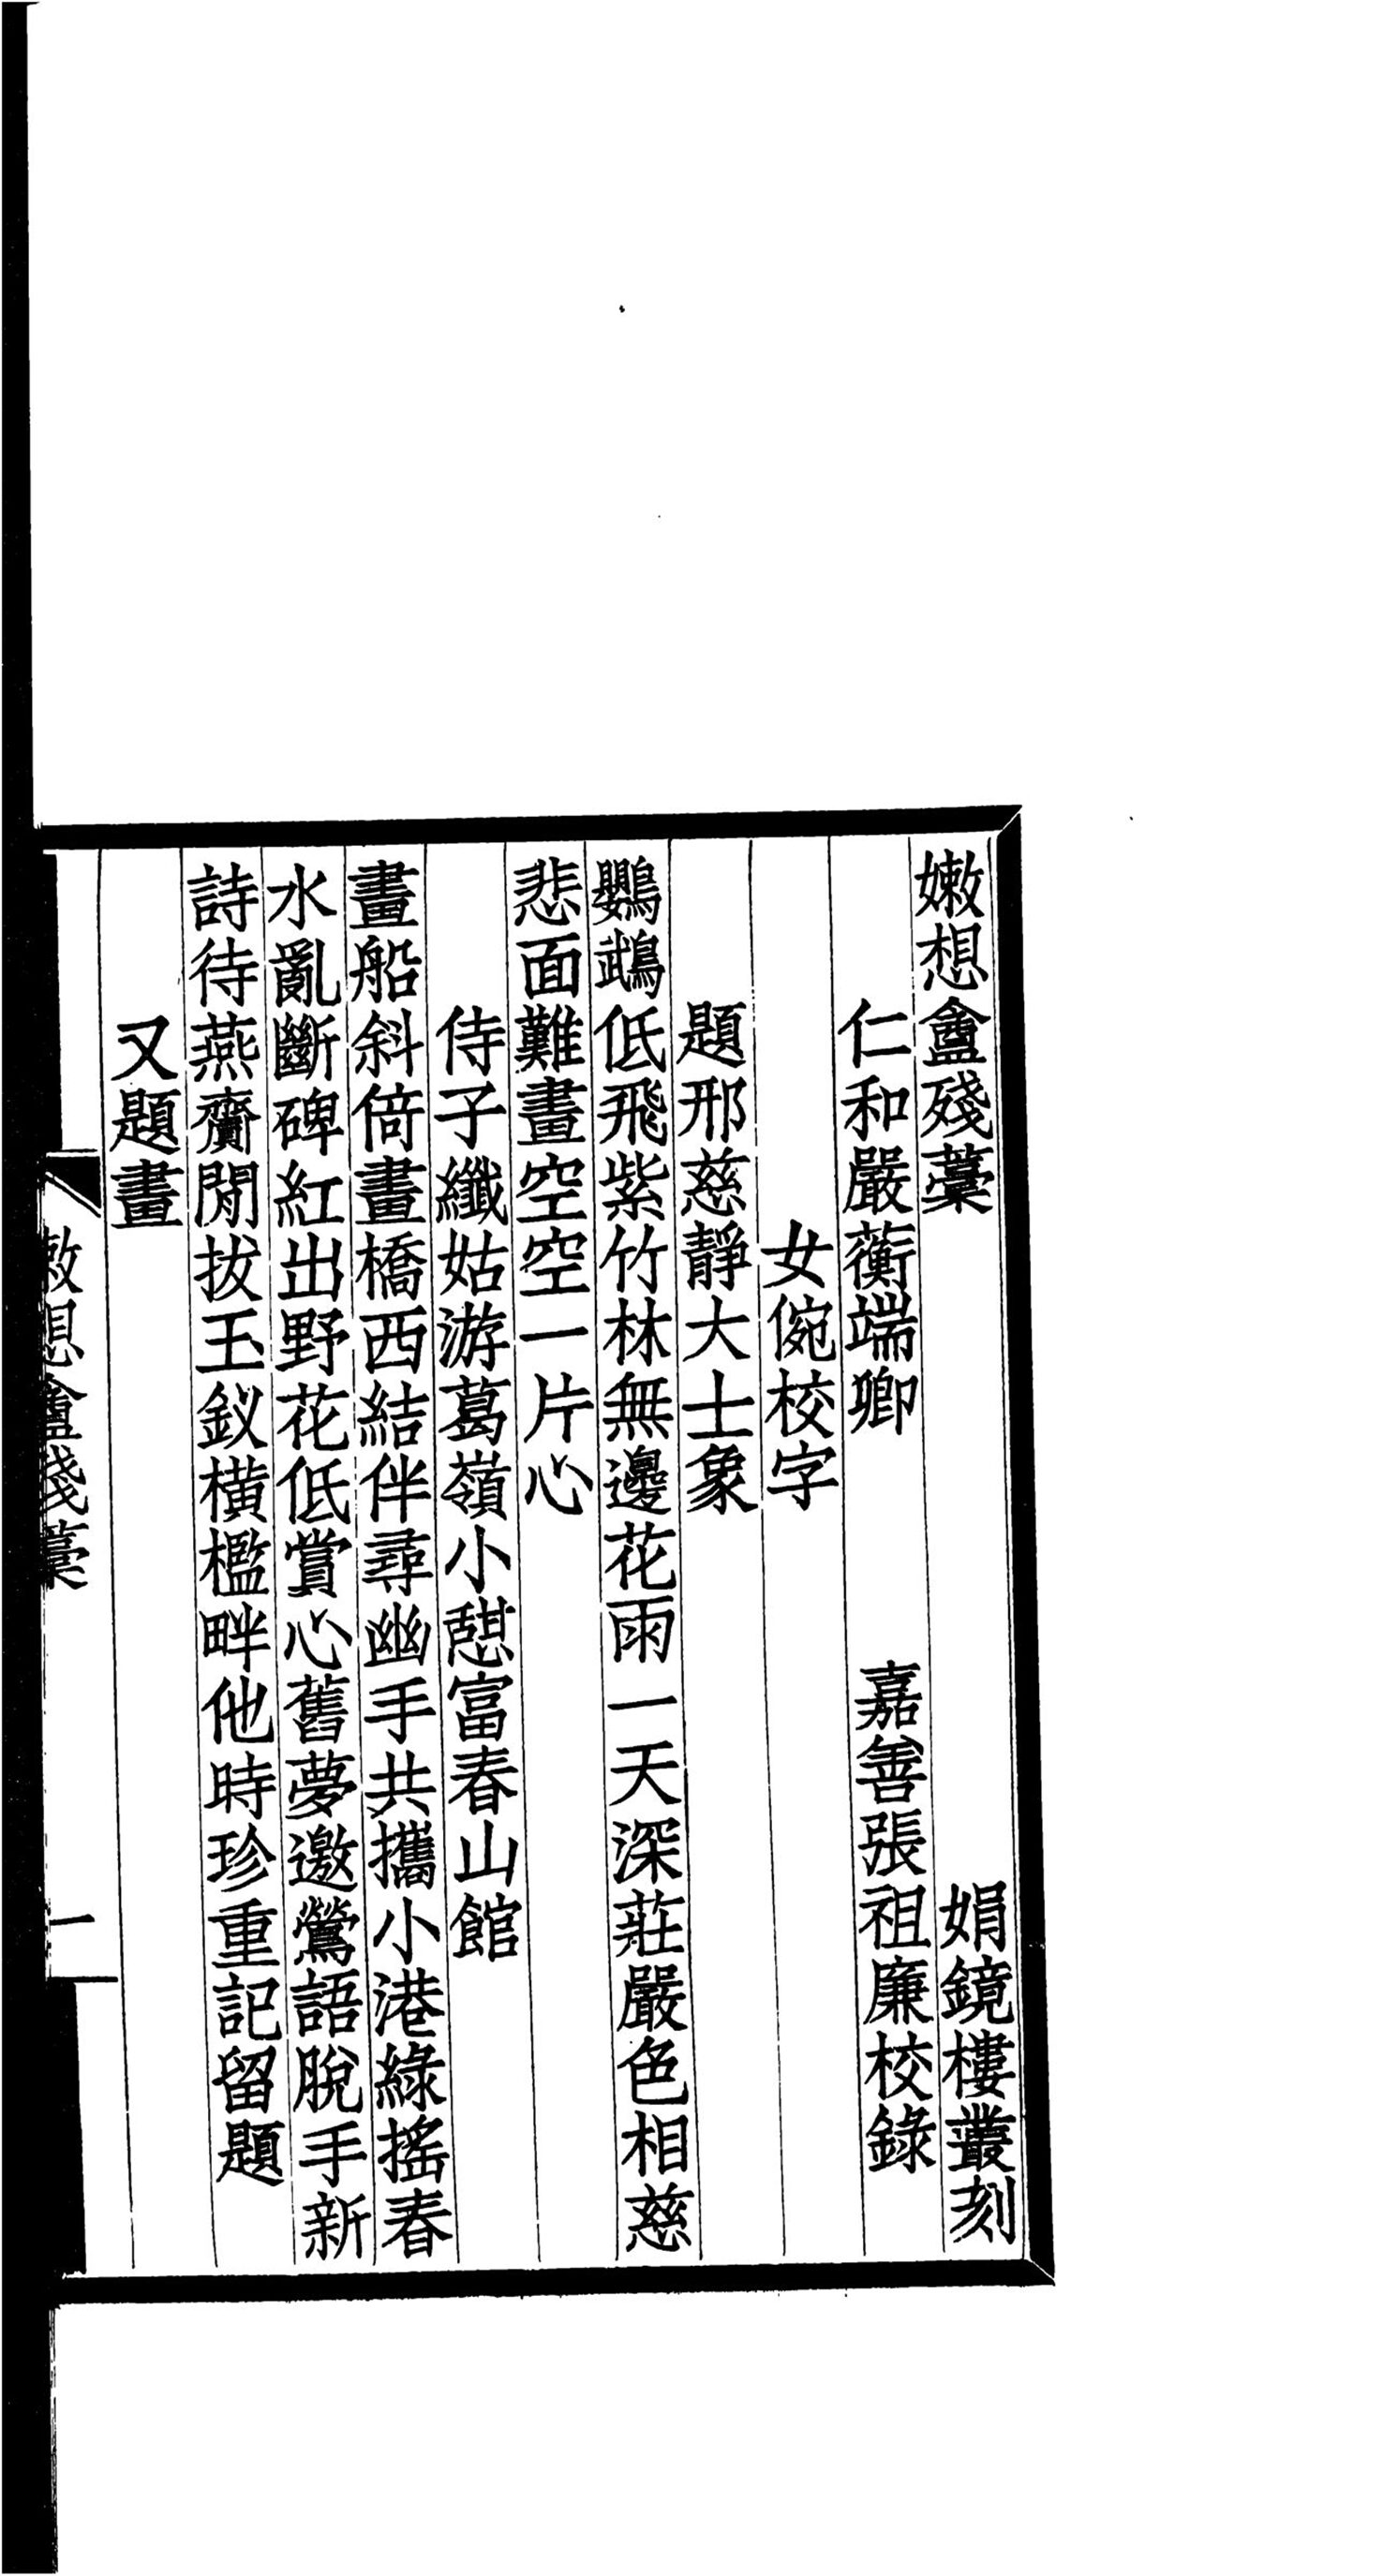 嫩想盦殘藁　娟鏡樓叢刻
仁和嚴蘅端卿　嘉善張祖廉校錄
女㑾校字
題邢慈靜大士象
鸚鵡低飛紫竹林無邊花雨一天深莊嚴色相慈
悲面難畫空空一片心
侍子纖姑游葛嶺小憩富春山館
畫船斜倚畫橋西結伴尋幽手共攜小港綠搖春
水亂斷碑紅出野花低賞心舊夢邀鶯語脫手新
詩待燕齎閒拔玉釵橫檻畔他時珍重記留題
又題畫
嫩想盦殘藁　一